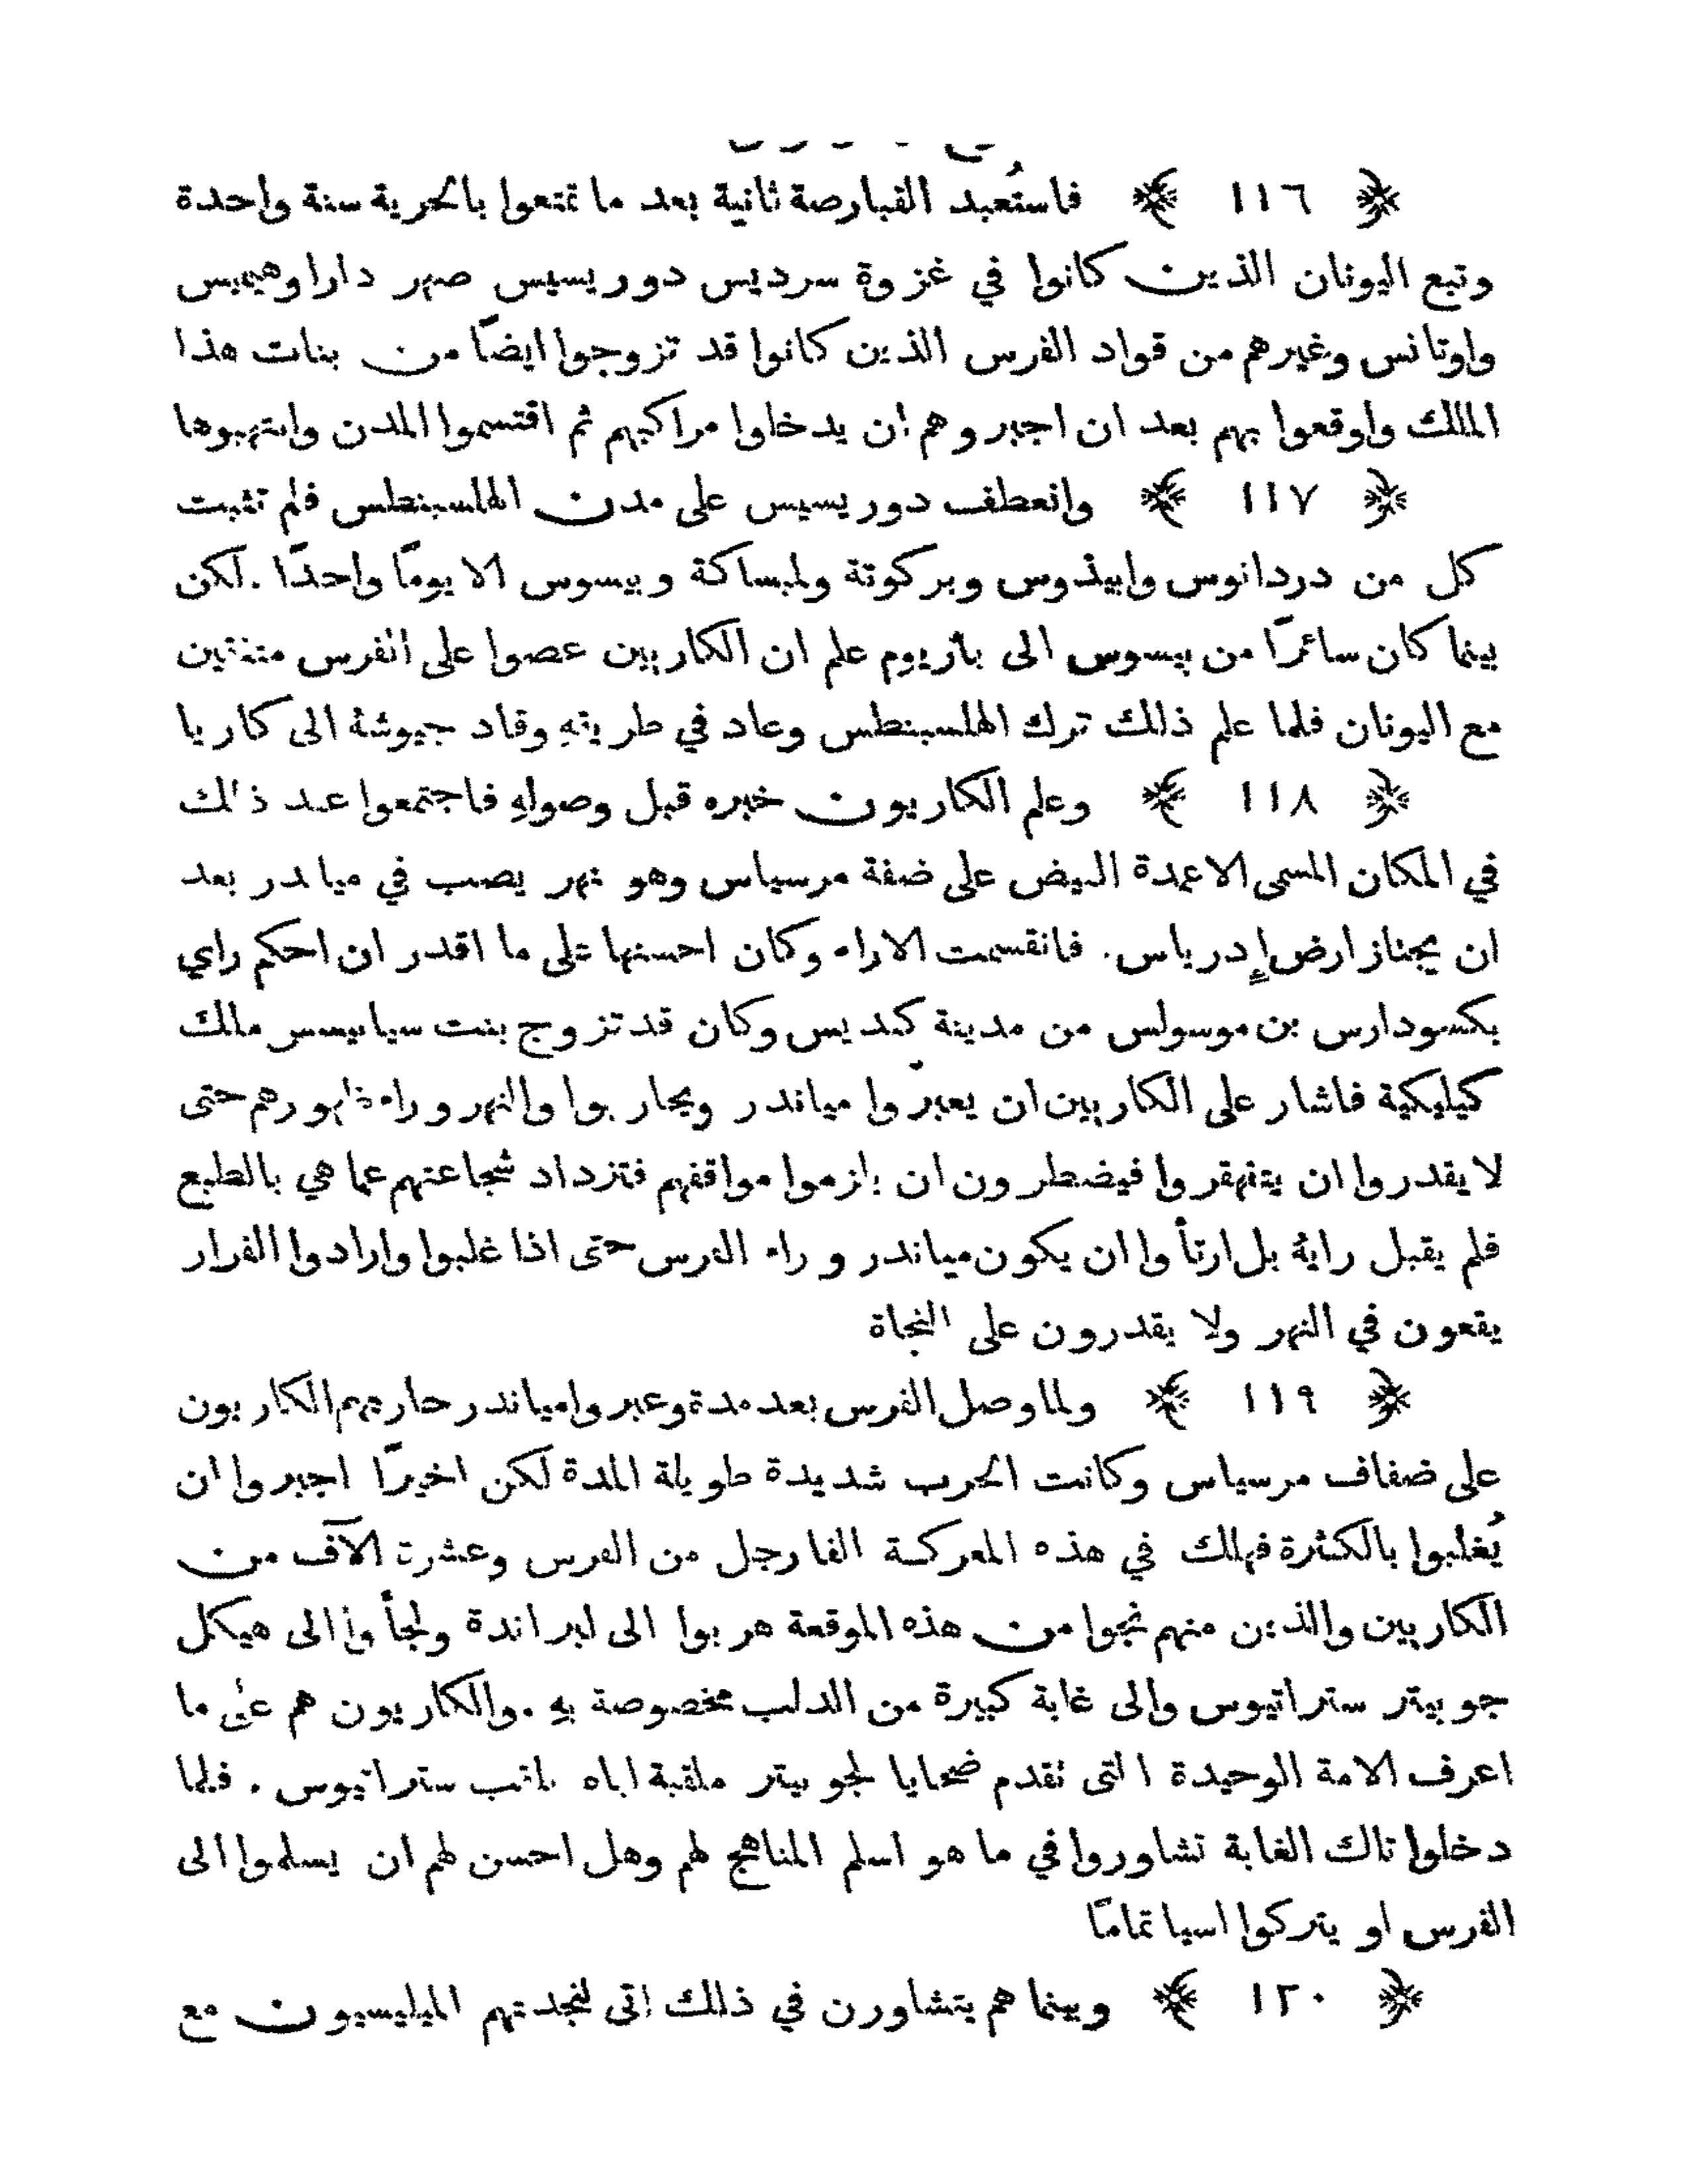 ﴿ ١١٦ ﴾ فاستُعبد القبارصة ثانية بعد ما تمتعوا بالحرية سنة واحدة
وتبع اليونان الذين كانوا في غزوة سرديس دوريسيس صهر دارا وهيميس
واوتانس وغيرهم من قواد الفرس الذين كانوا قد تزوجوا ايضًا من بنات هذا
الملك واوقعوا بهم بعد ان اجبروهم ان يدخلوا مراكبهم ثم اقتسموا المدن وانتهبوها
﴿ ١١٧ ﴾ وانعطف دوريسيس على مدن الهلسبنطس فلم تثبت
كل من دردانوس وابيذوس وبركوتة ولمبساكة وبيسوس الا يومًا واحدًا . لكن
بينما كان سائرًا من بيسوس الى باريوم علم ان الكاريين عصوا على الفرس متفقين
مع اليونان فلما علم ذلك ترك الهلسبنطس وعاد في طريقهِ وقاد جيوشهُ الى كاريا
﴿ ١١٨ ﴾ وعلم الكاريون خبره قبل وصولهِ فاجتمعوا عند ذلك
في المكان المسمى الاعمدة البيض على ضفة مرسياس وهو نهر يصب في مياندر بعد
ان يجتاز ارض إدرياس. فانقسمت الاراء وكان احسنها على ما اقدر ان احكم راي
بكسودارس بن موسولس من مدينة كنديس وكان قد تزوج بنت سيانيسس ملك
كيليكية فاشار على الكاريين ان يعبروا مياندر ويحاربوا والنهر وراء ظهورهم حتى
لا يقدروا ان يتقهقروا فيضطرون ان يلزموا مواقفهم فتزداد شجاعتهم عما هي بالطبع
فلم يقبل رايهُ بل ارتأوا ان يكون مياندر وراء الفرس حتى اذا غلبوا وارادوا الفرار
يقعون في النهر ولا يقدرون على النجاة
﴿ ١١٩ ﴾ ولما وصل الفرس بعد مدة وعبروا مياندر حاربهم الكاريون
على ضفاف مرسياس وكانت الحرب شديدة طويلة المدة لكن اخيرًا اجبروا ان
يُغلبوا بالكثرة فهلك في هذه المعركة الفا رجل من الفرس وعشرة الآف من
الكاريين والذين منهم نجوا من هذه الموقعة هربوا الى لبراندة ولجأوا الى هيكل
جوبيتر ستراتيوس والى غابة كبيرة من الدلب مخصوصة بهِ . والكاريون هم على ما
اعرف الامة الوحيدة التى تقدم ضحايا لجوبيتر ملقبة اياه بلقب ستراتيوس . فلما
دخلوا تلك الغابة تشاوروا في ما هو اسلم المناهج لهم وهل احسن لهم ان يسلموا الى
الفرس او يتركوا اسيا تمامًا
﴿ ١٢٠ ﴾ وبينما هم يتشاورن في ذلك اتى لنجدتهم الميليسيون مع